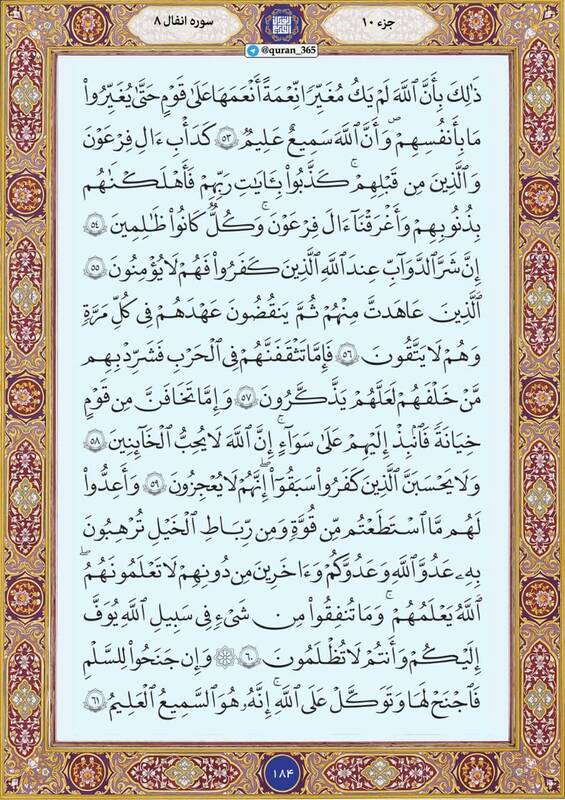 جزء ۱۰
سوره انفال ۸
@quran_365
ذَٰلِكَ بِأَنَّ ٱللَّهَ لَمۡ يَكُ مُغَيِّرٗا نِّعۡمَةً أَنۡعَمَهَا عَلَىٰ قَوۡمٍ حَتَّىٰ يُغَيِّرُواْ
مَا بِأَنفُسِهِمۡ وَأَنَّ ٱللَّهَ سَمِيعٌ عَلِيمٞ ٥٣ كَدَأۡبِ ءَالِ فِرۡعَوۡنَ
وَٱلَّذِينَ مِن قَبۡلِهِمۡۚ كَذَّبُواْ بِـَٔايَٰتِ رَبِّهِمۡ فَأَهۡلَكۡنَٰهُم
بِذُنُوبِهِمۡ وَأَغۡرَقۡنَآ ءَالَ فِرۡعَوۡنَۚ وَكُلّٞ كَانُواْ ظَٰلِمِينَ ٥٤
إِنَّ شَرَّ ٱلدَّوَآبِّ عِندَ ٱللَّهِ ٱلَّذِينَ كَفَرُواْ فَهُمۡ لَا يُؤۡمِنُونَ ٥٥
ٱلَّذِينَ عَٰهَدتَّ مِنۡهُمۡ ثُمَّ يَنقُضُونَ عَهۡدَهُمۡ فِي كُلِّ مَرَّةٖ
وَهُمۡ لَا يَتَّقُونَ ٥٦ فَإِمَّا تَثۡقَفَنَّهُمۡ فِي ٱلۡحَرۡبِ فَشَرِّدۡ بِهِم
مَّنۡ خَلۡفَهُمۡ لَعَلَّهُمۡ يَذَّكَّرُونَ ٥٧ وَإِمَّا تَخَافَنَّ مِن قَوۡمٍ
خِيَانَةٗ فَٱنۢبِذۡ إِلَيۡهِمۡ عَلَىٰ سَوَآءٍۚ إِنَّ ٱللَّهَ لَا يُحِبُّ ٱلۡخَآئِنِينَ ٥٨
وَلَا يَحۡسَبَنَّ ٱلَّذِينَ كَفَرُواْ سَبَقُوٓاْۚ إِنَّهُمۡ لَا يُعۡجِزُونَ ٥٩ وَأَعِدُّواْ
لَهُم مَّا ٱسۡتَطَعۡتُم مِّن قُوَّةٖ وَمِن رِّبَاطِ ٱلۡخَيۡلِ تُرۡهِبُونَ
بِهِۦ عَدُوَّ ٱللَّهِ وَعَدُوَّكُمۡ وَءَاخَرِينَ مِن دُونِهِمۡ لَا تَعۡلَمُونَهُمُ
ٱللَّهُ يَعۡلَمُهُمۡۚ وَمَا تُنفِقُواْ مِن شَيۡءٖ فِي سَبِيلِ ٱللَّهِ يُوَفَّ
إِلَيۡكُمۡ وَأَنتُمۡ لَا تُظۡلَمُونَ ٦٠ ۞ وَإِن جَنَحُواْ لِلسَّلۡمِ
فَٱجۡنَحۡ لَهَا وَتَوَكَّلۡ عَلَى ٱللَّهِۚ إِنَّهُۥ هُوَ ٱلسَّمِيعُ ٱلۡعَلِيمُ ٦١
۱۸۴